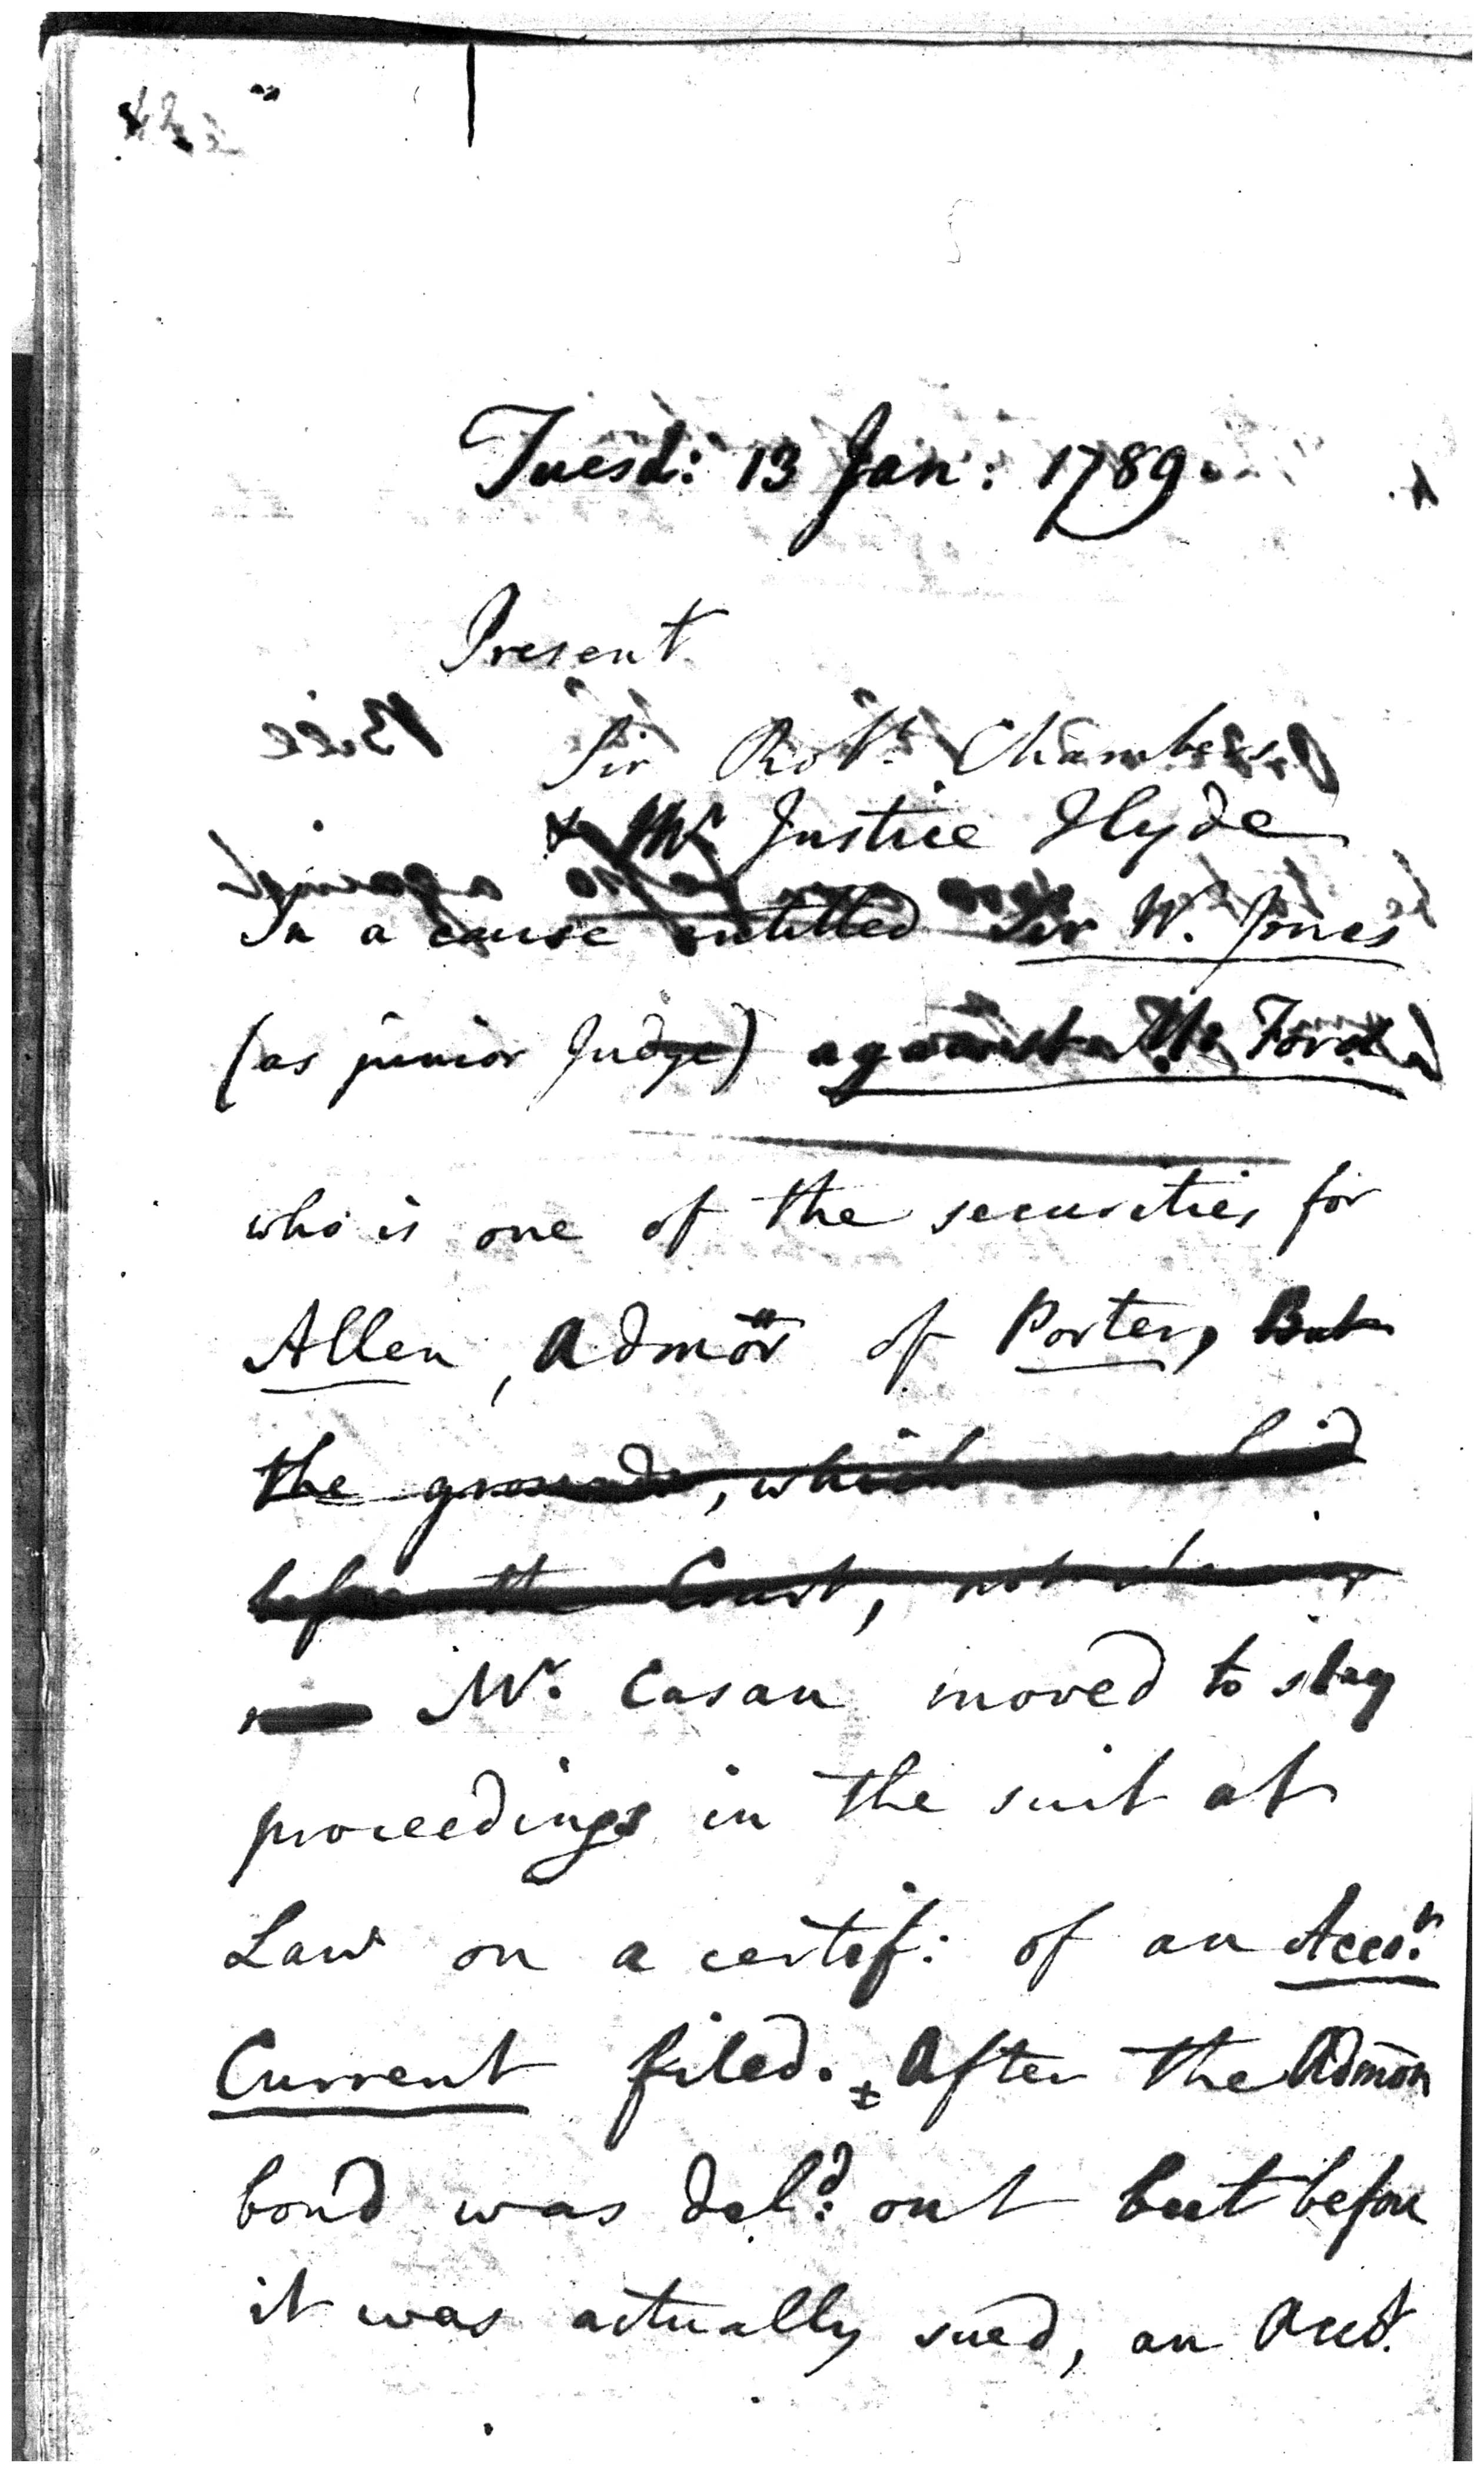 Tuesd: 13 Jan: 1789.
Present
Sir Robt. Chambers
& Mr Justice Hyde
In a cause entitled Sir W. Jones
(as junior Judge) against Mr. Ford
who is one of the securities for
Allen, Admor of Porter, But
the grounds, which
before the Court,
Mr. Casan moved to stay
proceedings in the suit at
Law on a certif: of an Acco.t
Current filed. ± After the Admon
bond was deld: out but before
it was actually sued, an Acct.